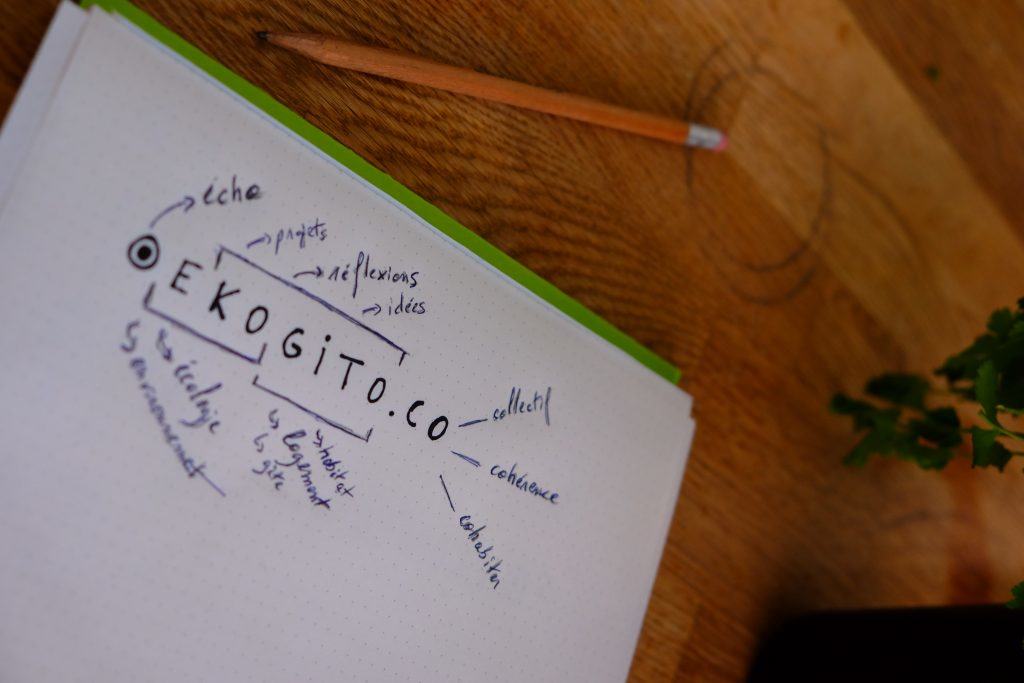 → écho
→ projets
→ réflexions
→ idées
EKOGiTO.CO
↳ écologie
↳ environnement
↳ habitat
↳ logement
↳ gîte
collectif
cohérence
cohabiter